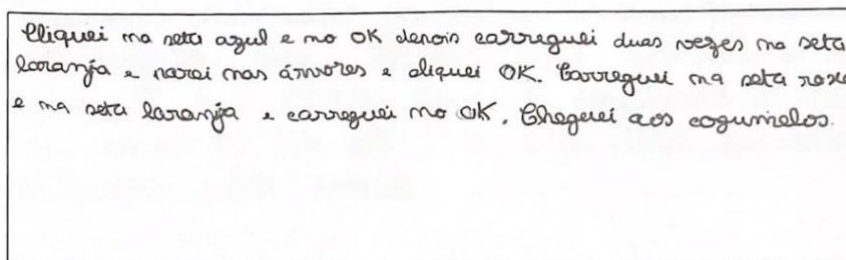 Cliquei na seta azul e no OK depois carreguei duas vezes na seta
laranja e parai nas árvores e cliquei OK. Carreguei na seta roxa
e na seta laranja e carreguei no OK. Cheguei aos cogumelos.